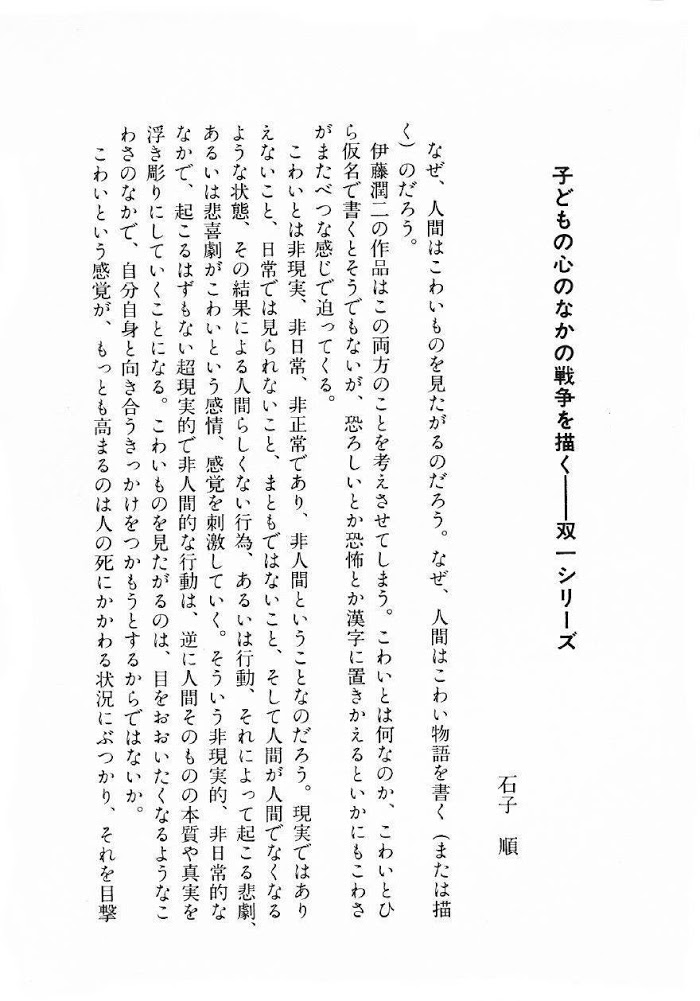 子どもの心のなかの戦争を描く――双一シリーズ
石子　順
なぜ、人間はこわいものを見たがるのだろう。なぜ、人間はこわい物語を書く（または描
く）のだろう。
伊藤潤二の作品はこの両方のことを考えさせてしまう。こわいとは何なのか、こわいとひ
ら仮名で書くとそうでもないが、恐ろしいとか恐怖とか漢字に置きかえるといかにもこわさ
がまたべつな感じで迫ってくる。
こわいとは非現実、非日常、非正常であり、非人間ということなのだろう。現実ではあり
えないこと、日常では見られないこと、まともではないこと、そして人間が人間でなくなる
ような状態、その結果による人間らしくない行為、あるいは行動、それによって起こる悲劇、
あるいは悲喜劇がこわいという感情、感覚を刺激していく。そういう非現実的、非日常的な
なかで、起こるはずもない超現実的で非人間的な行動は、逆に人間そのものの本質や真実を
浮き彫りにしていくことになる。こわいものを見たがるのは、目をおおいたくなるようなこ
わさのなかで、自分自身と向き合うきっかけをつかもうとするからではないか。
こわいという感覚が、もっとも高まるのは人の死にかかわる状況にぶつかり、それを目撃